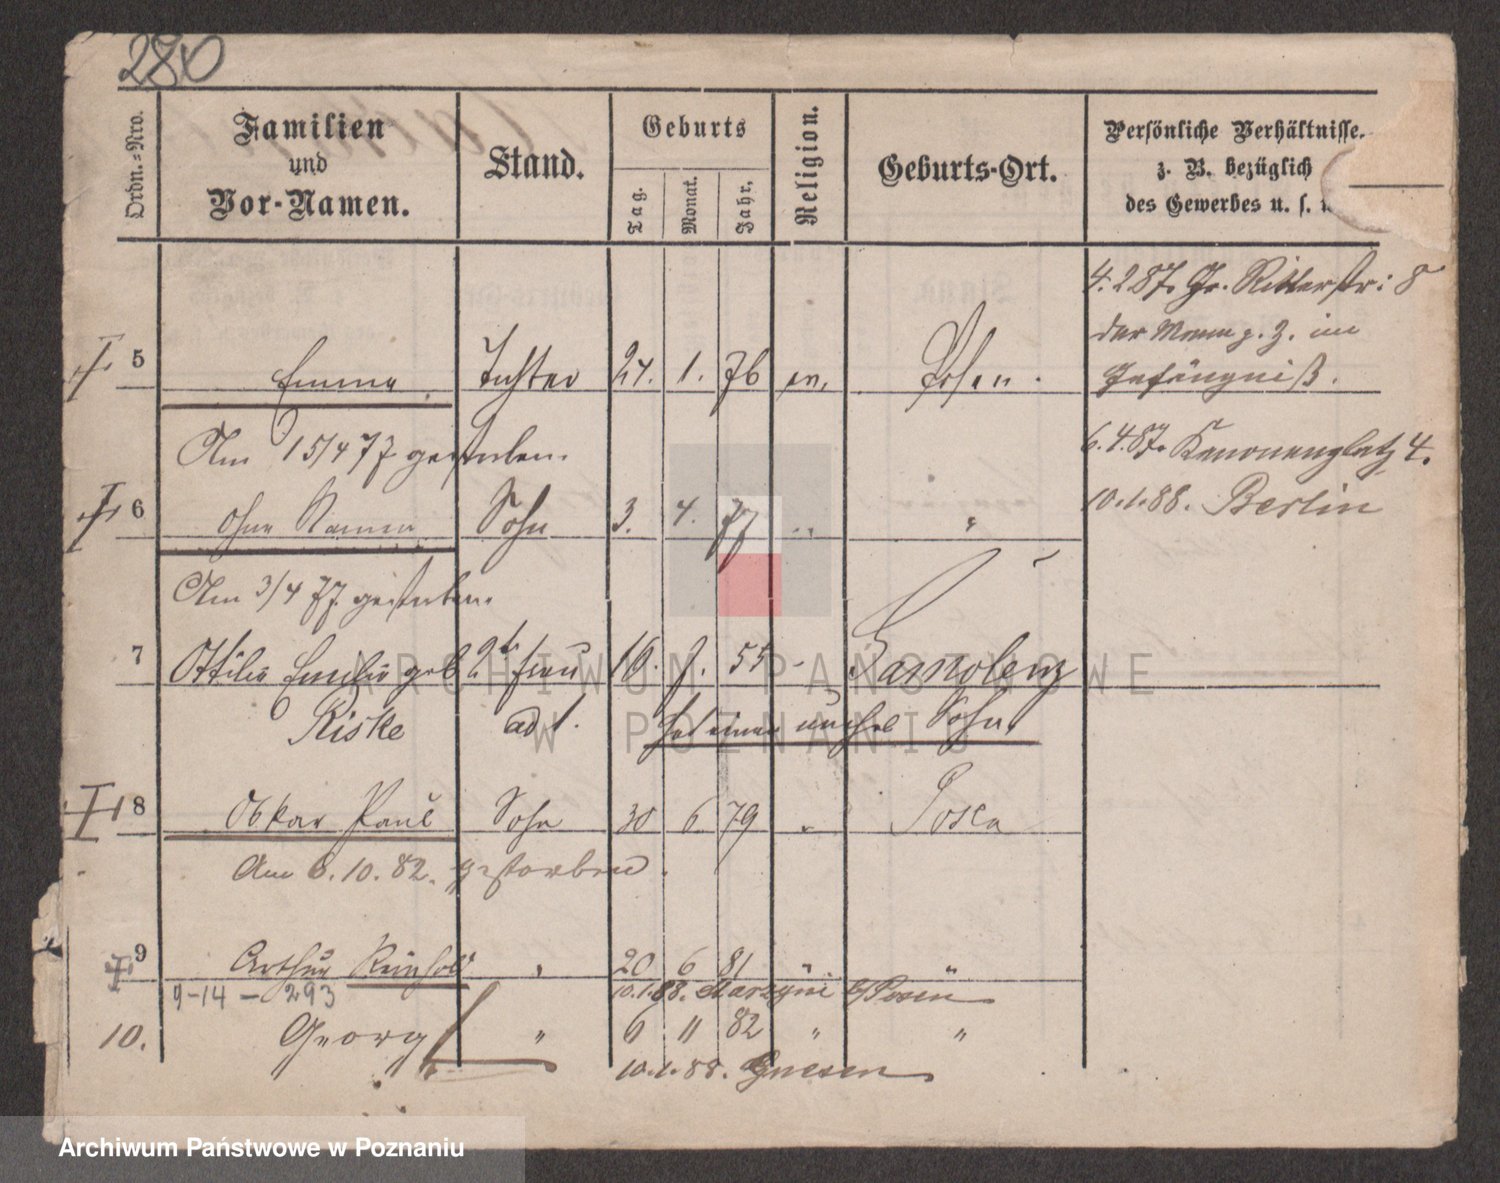 280
Ordn.=Nro.
Familien
und
Vor-Namen.
Stand.
Geburts
Tag.
Monat.
Jahr.
Religion.
Geburts-Ort.
Persönliche Verhältnisse.
z. B. bezüglich
des Gewerbes u. s.
4. 2 87. Gr. Ritterstr: 8
der Mann z. Z. im
Gefängniß.
5 Emma Tochter 24. 1. 76 ev. Posen.
Am 15/4 77 gestorben.
6. 4. 87. Kanonenplatz 4.
10. 1. 88. Berlin
6 ohne Namen Sohn 3. 4. 77 " "
Am 3/4 77 gestorben.
7 Ottilie Emilie geb 2te frau 16. 55 -
Riske ad 1. hat einen unehel Sohn.
8 Oskar Paul Sohn 30 6. 79 " Posen
Am 8. 10. 82. gestorben.
9 Arthur Reinhold " 20 6 81 " "
9-14 - 293 10. 1. 88. b/Posen
10. Georg " 6 11 82 " "
10. 1. 88. Gnesen
ARCHIWUM PAŃSTWOWE
W POZNANIU
Archiwum Państwowe w Poznaniu